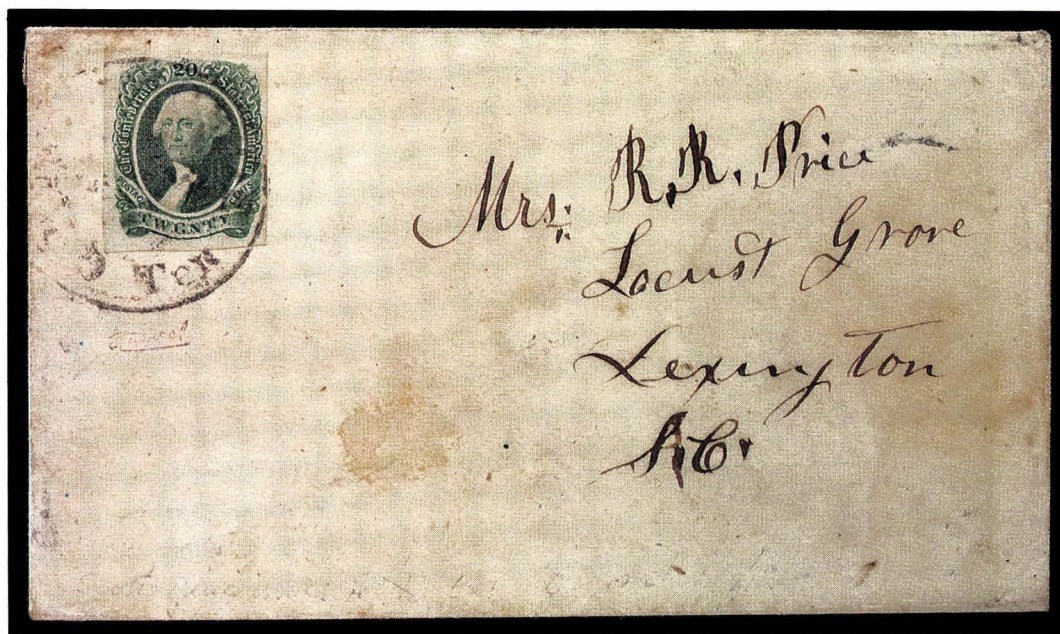 20
The Confederate States of America
POSTAGE CENTS
TWENTY
Mrs. R. R. Price
Locust Grove
Lexington